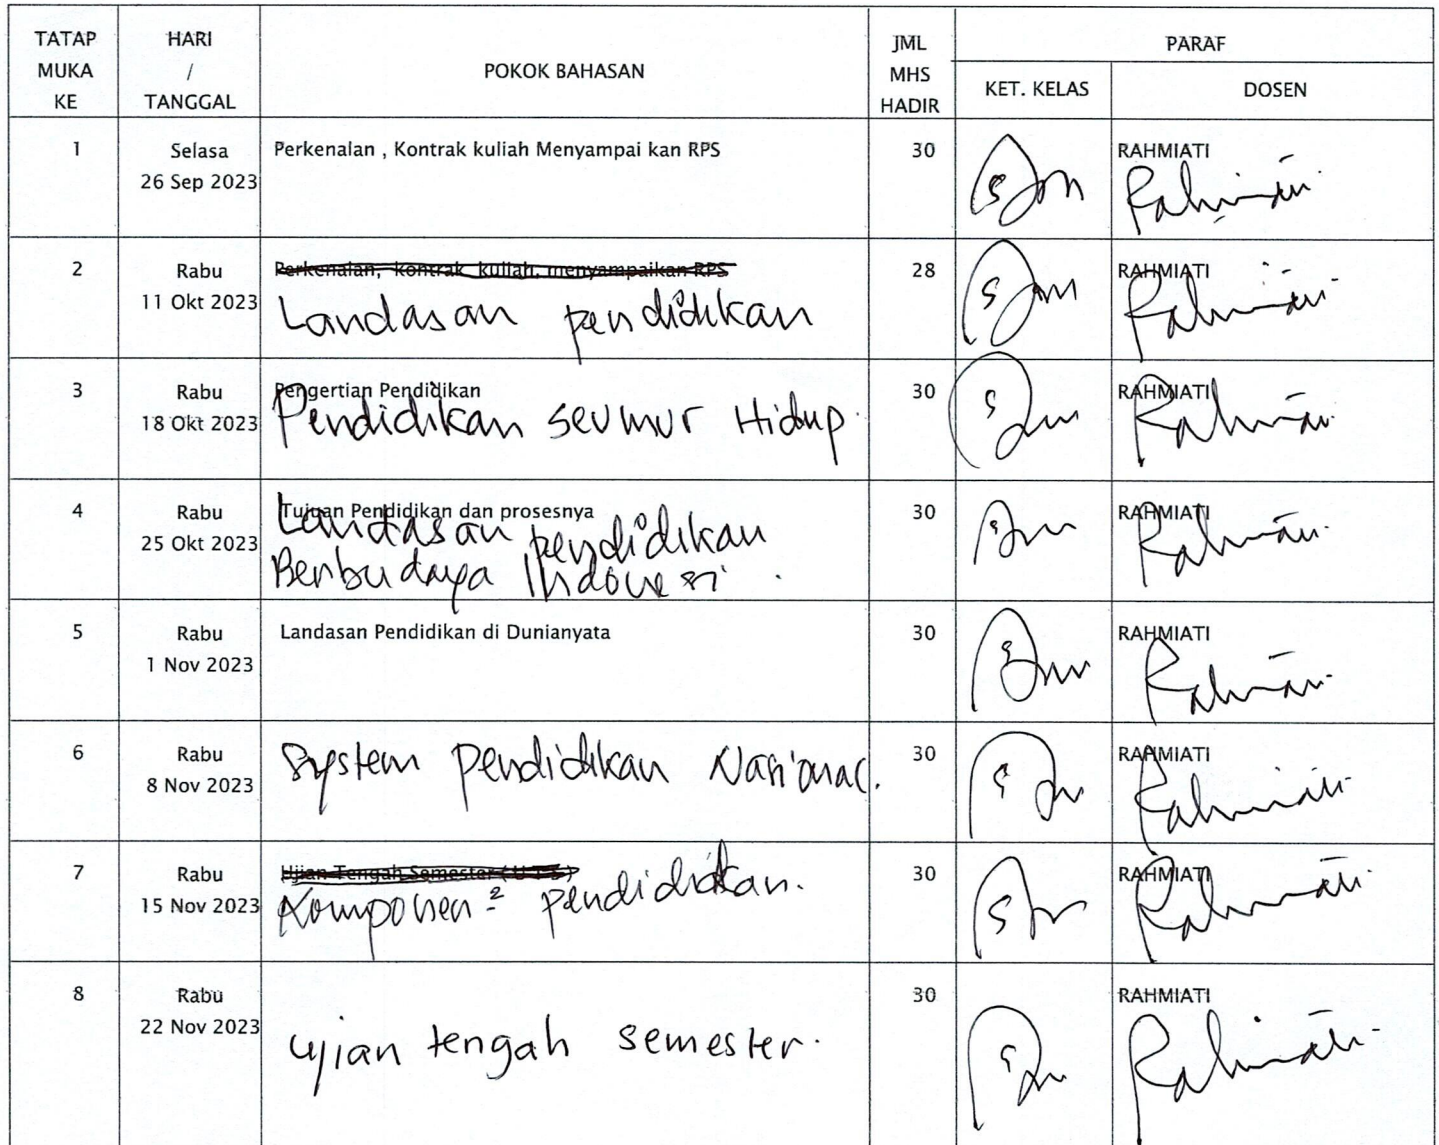 TATAP MUKA KE
HARI / TANGGAL
POKOK BAHASAN
JML MHS HADIR
PARAF
KET. KELAS
DOSEN
1
Selasa
26 Sep 2023
Perkenalan , Kontrak kuliah Menyampai kan RPS
30
RAHMIATI
2
Rabu
11 Okt 2023
Perkenalan, kontrak kuliah, menyampaikan RPS
Landasan pendidikan
28
RAHMIATI
3
Rabu
18 Okt 2023
Pengertian Pendidikan
Pendidikan seumur Hidup
30
RAHMIATI
4
Rabu
25 Okt 2023
Tujuan Pendidikan dan prosesnya
Landasan pendidikan
Berbudaya Indonesi
30
RAHMIATI
5
Rabu
1 Nov 2023
Landasan Pendidikan di Dunianyata
30
RAHMIATI
6
Rabu
8 Nov 2023
System pendidikan Nasional.
30
RAHMIATI
7
Rabu
15 Nov 2023
Ujian Tengah Semester ( U T S )
Komponen² pendidikan.
30
RAHMIATI
8
Rabu
22 Nov 2023
ujian tengah semester.
30
RAHMIATI